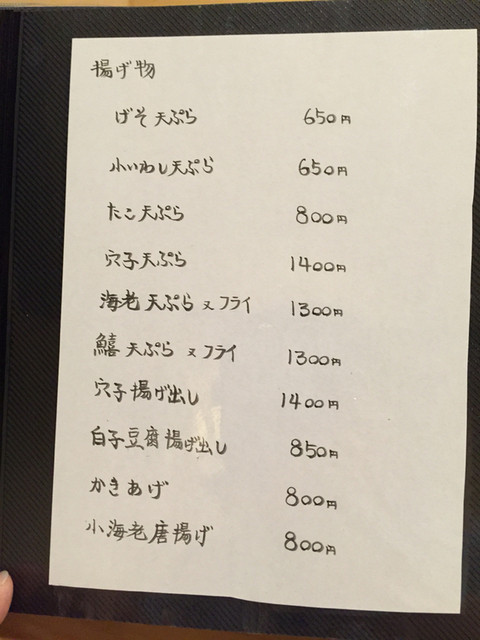 揚げ物
げそ天ぷら 650円
小いわし天ぷら 650円
たこ天ぷら 800円
穴子天ぷら 1400円
海老天ぷら又フライ 1300円
鱚天ぷら又フライ 1300円
穴子揚げ出し 1400円
白子豆腐揚げ出し 850円
かきあげ 800円
小海老唐揚げ 800円